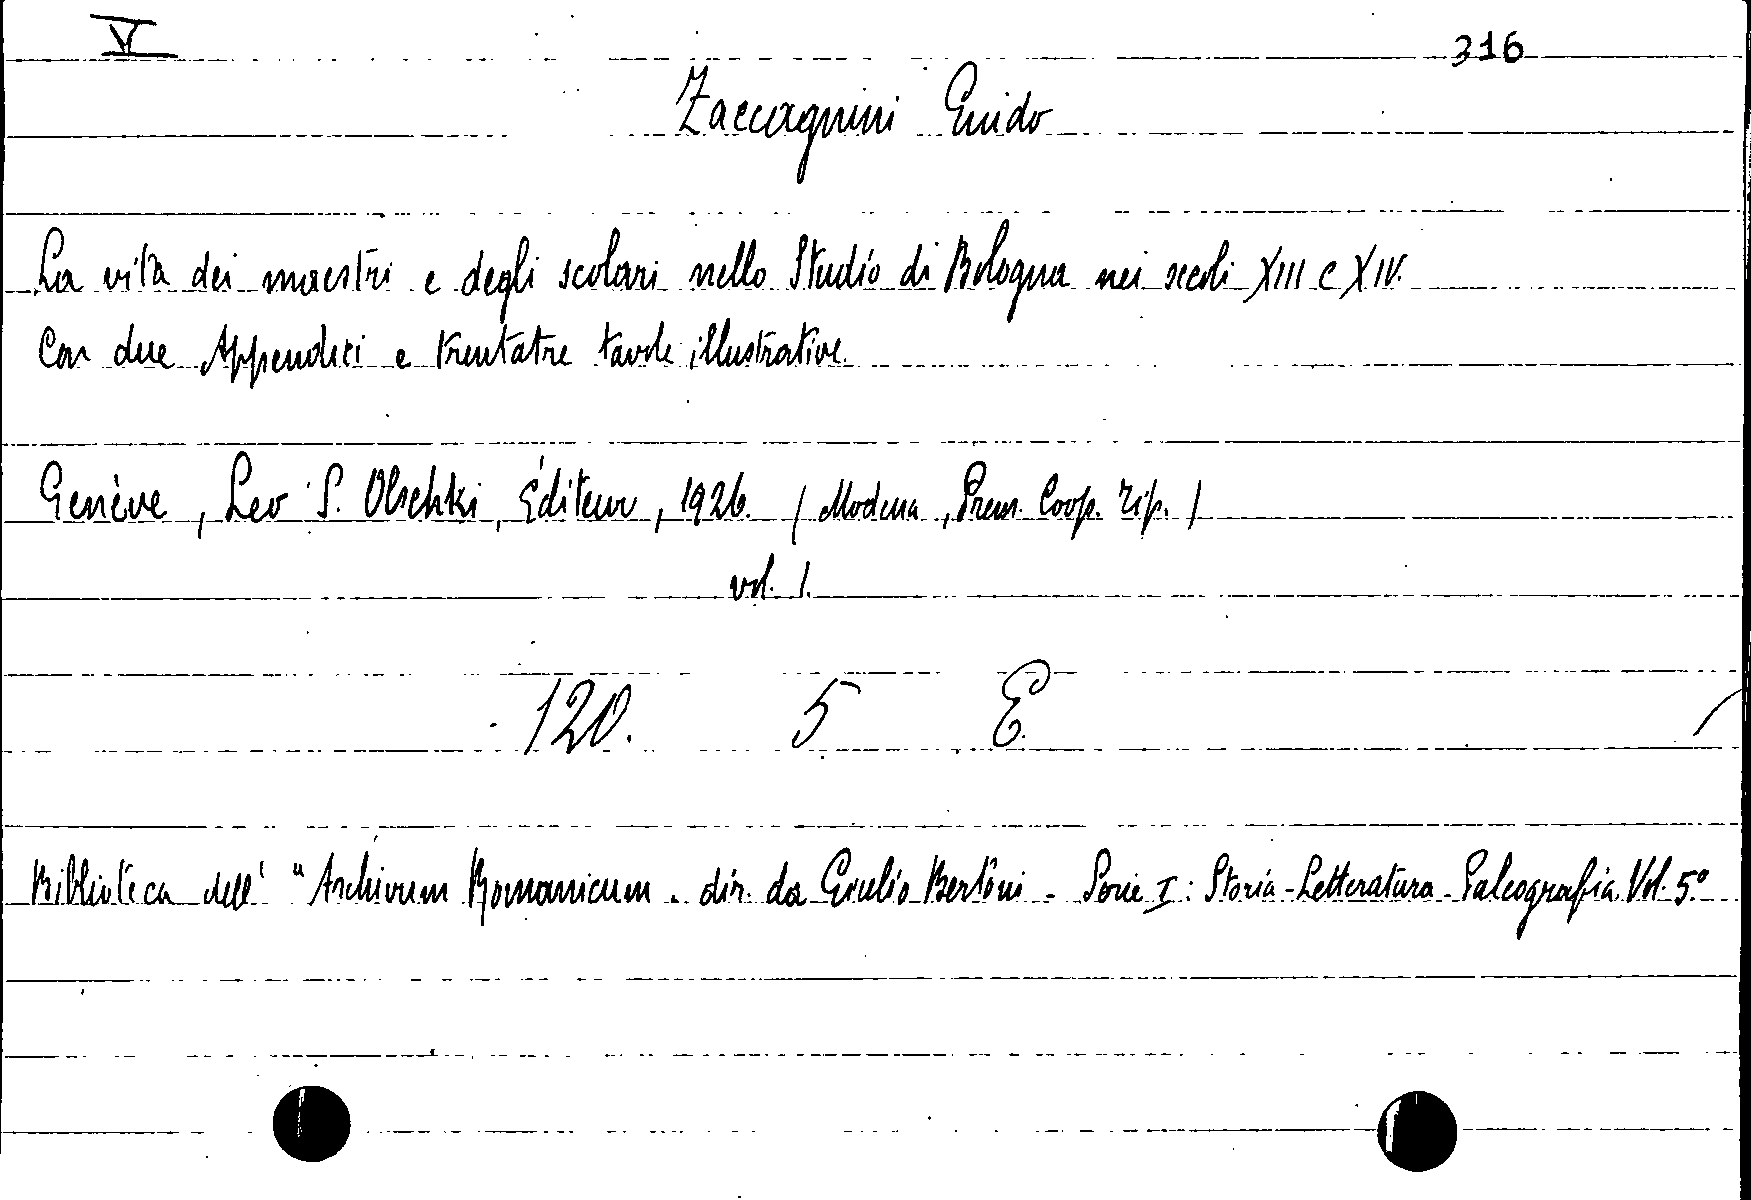 V 316
Zaccagnini Guido
La vita dei maestri e degli scolari nello Studio di Bologna nei secoli XIII e XIV.
Con due Appendici e trentatre tavole illustrative.
Genève, Leo S. Olschki, Éditeur, 1926. (Modena, Prem. Coop. Tip.)
vol. 1.
120. 5 E
Biblioteca dell' "Archivum Romanicum. dir. da Giulio Bertoni - Serie I: Storia - Letteratura - Paleografia. Vol. 5º